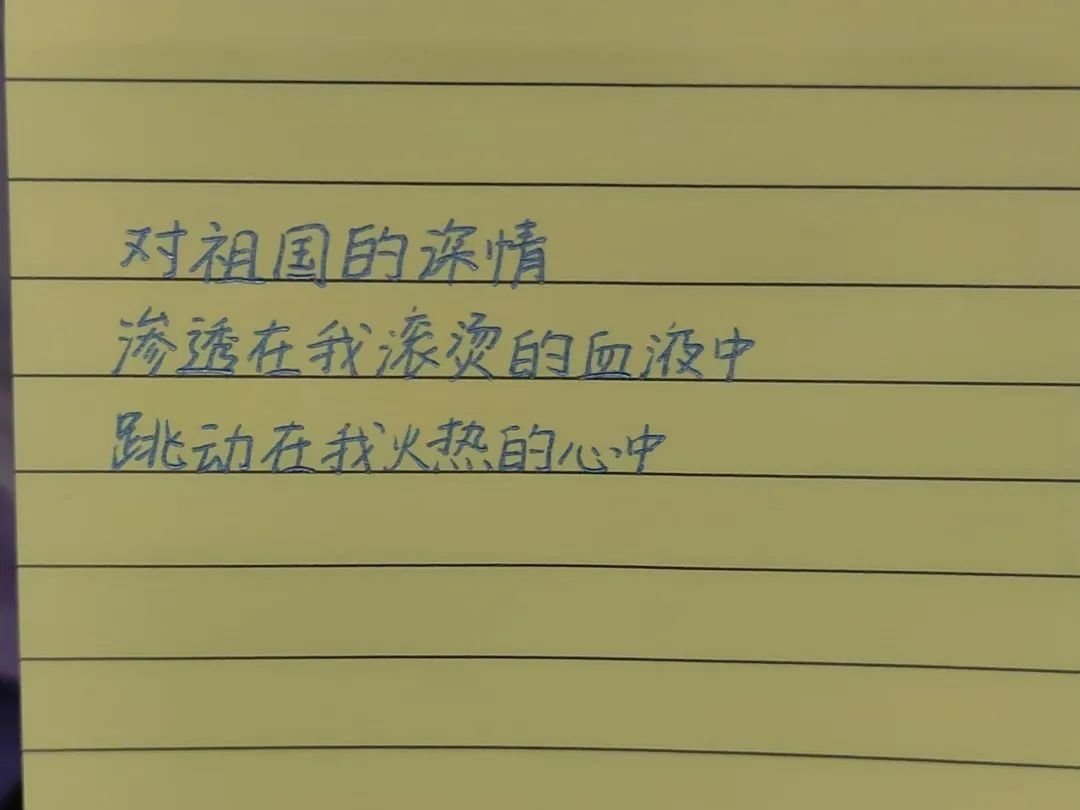 对祖国的深情
渗透在我滚烫的血液中
跳动在我火热的心中